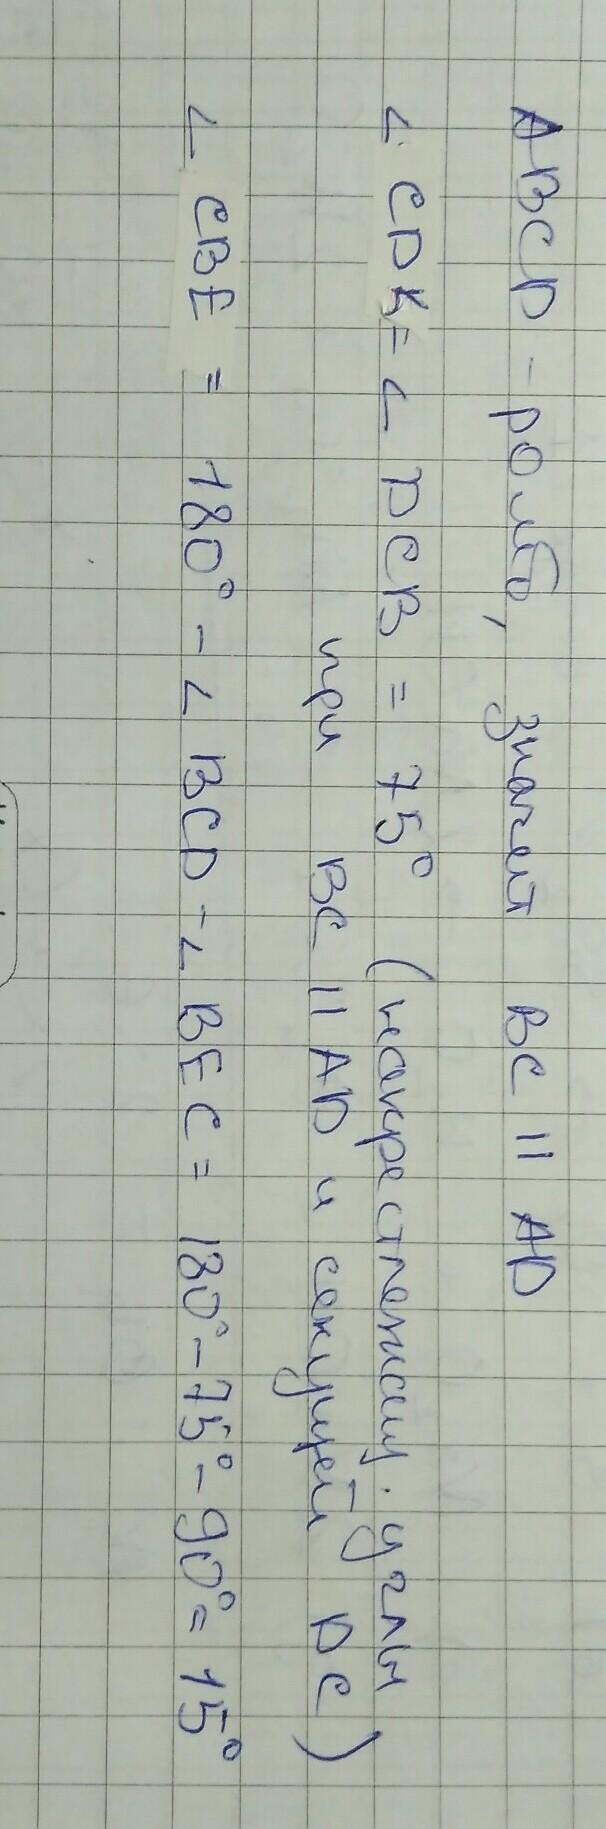 ABCD - ромб, значит BC || AD
∠ CDK = ∠ DCB = 75° (накрестлежащ. углы
при BC || AD и секущей DC)
∠ CBE = 180° - ∠ BCD - ∠ BEC = 180° - 75° - 90° = 15°